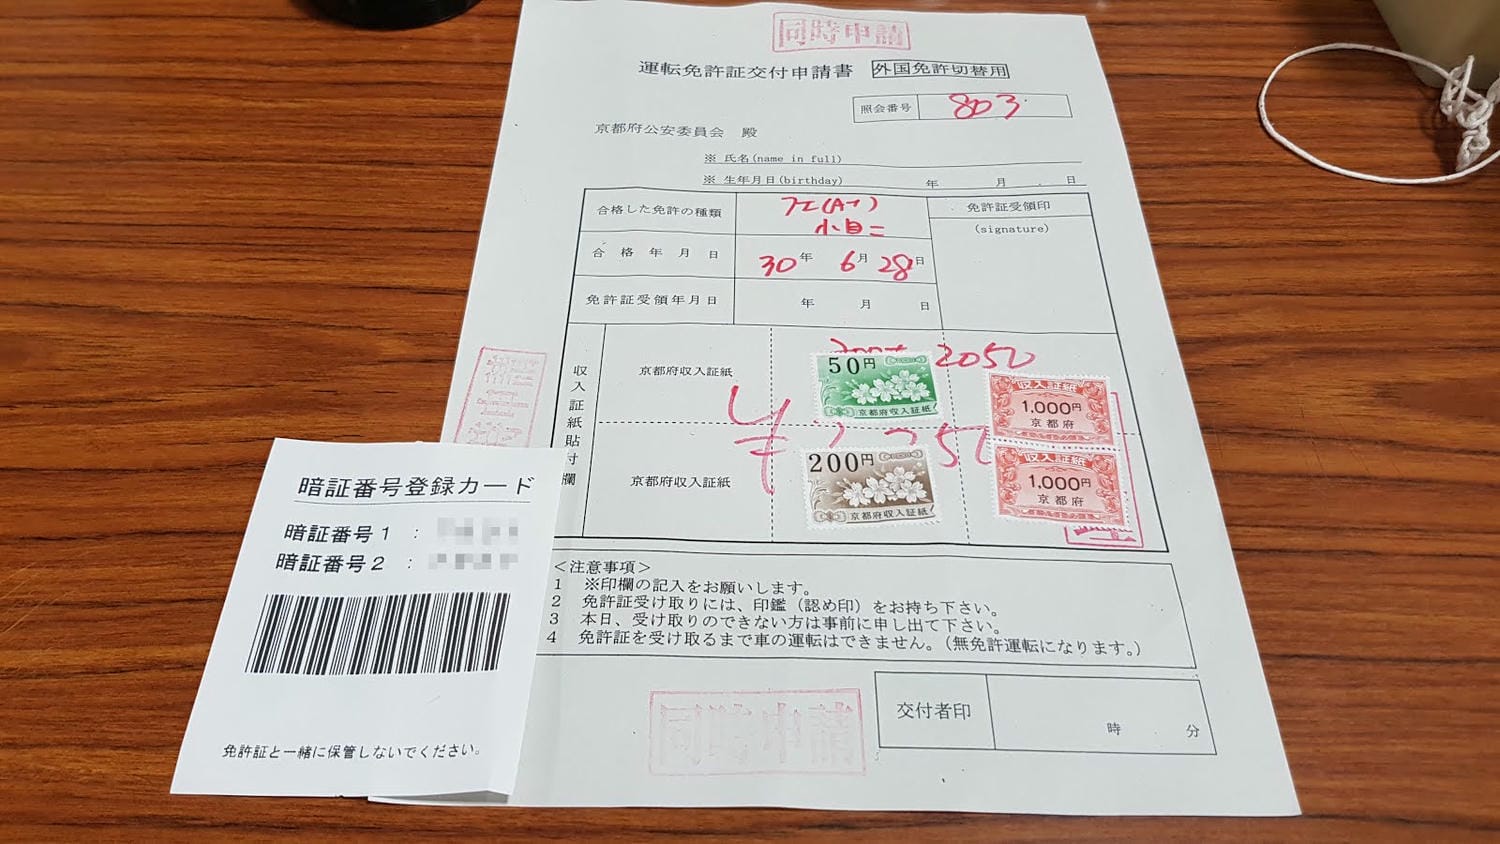 同時申請
運転免許証交付申請書 外国免許切替用
照会番号 803
京都府公安委員会 殿
※ 氏名(name in full)
※ 生年月日(birthday) 年 月 日
合格した免許の種類 フエ(AT) 小自二
免許証受領印
(signature)
合格年月日 30年 6月 28日
免許証受領年月日 年 月 日
収入証紙貼付欄
京都府収入証紙
2050
50円
京都府収入証紙
収入証紙
1,000円
京都府
京都府収入証紙
¥
200円
京都府収入証紙
収入証紙
1,000円
京都府
<注意事項>
1 ※印欄の記入をお願いします。
2 免許証受け取りには、印鑑（認め印）をお持ち下さい。
3 本日、受け取りのできない方は事前に申し出て下さい。
4 免許証を受け取るまで車の運転はできません。（無免許運転になります。）
同時申請
交付者印 時 分
暗証番号登録カード
暗証番号1 :
暗証番号2 :
免許証と一緒に保管しないでください。